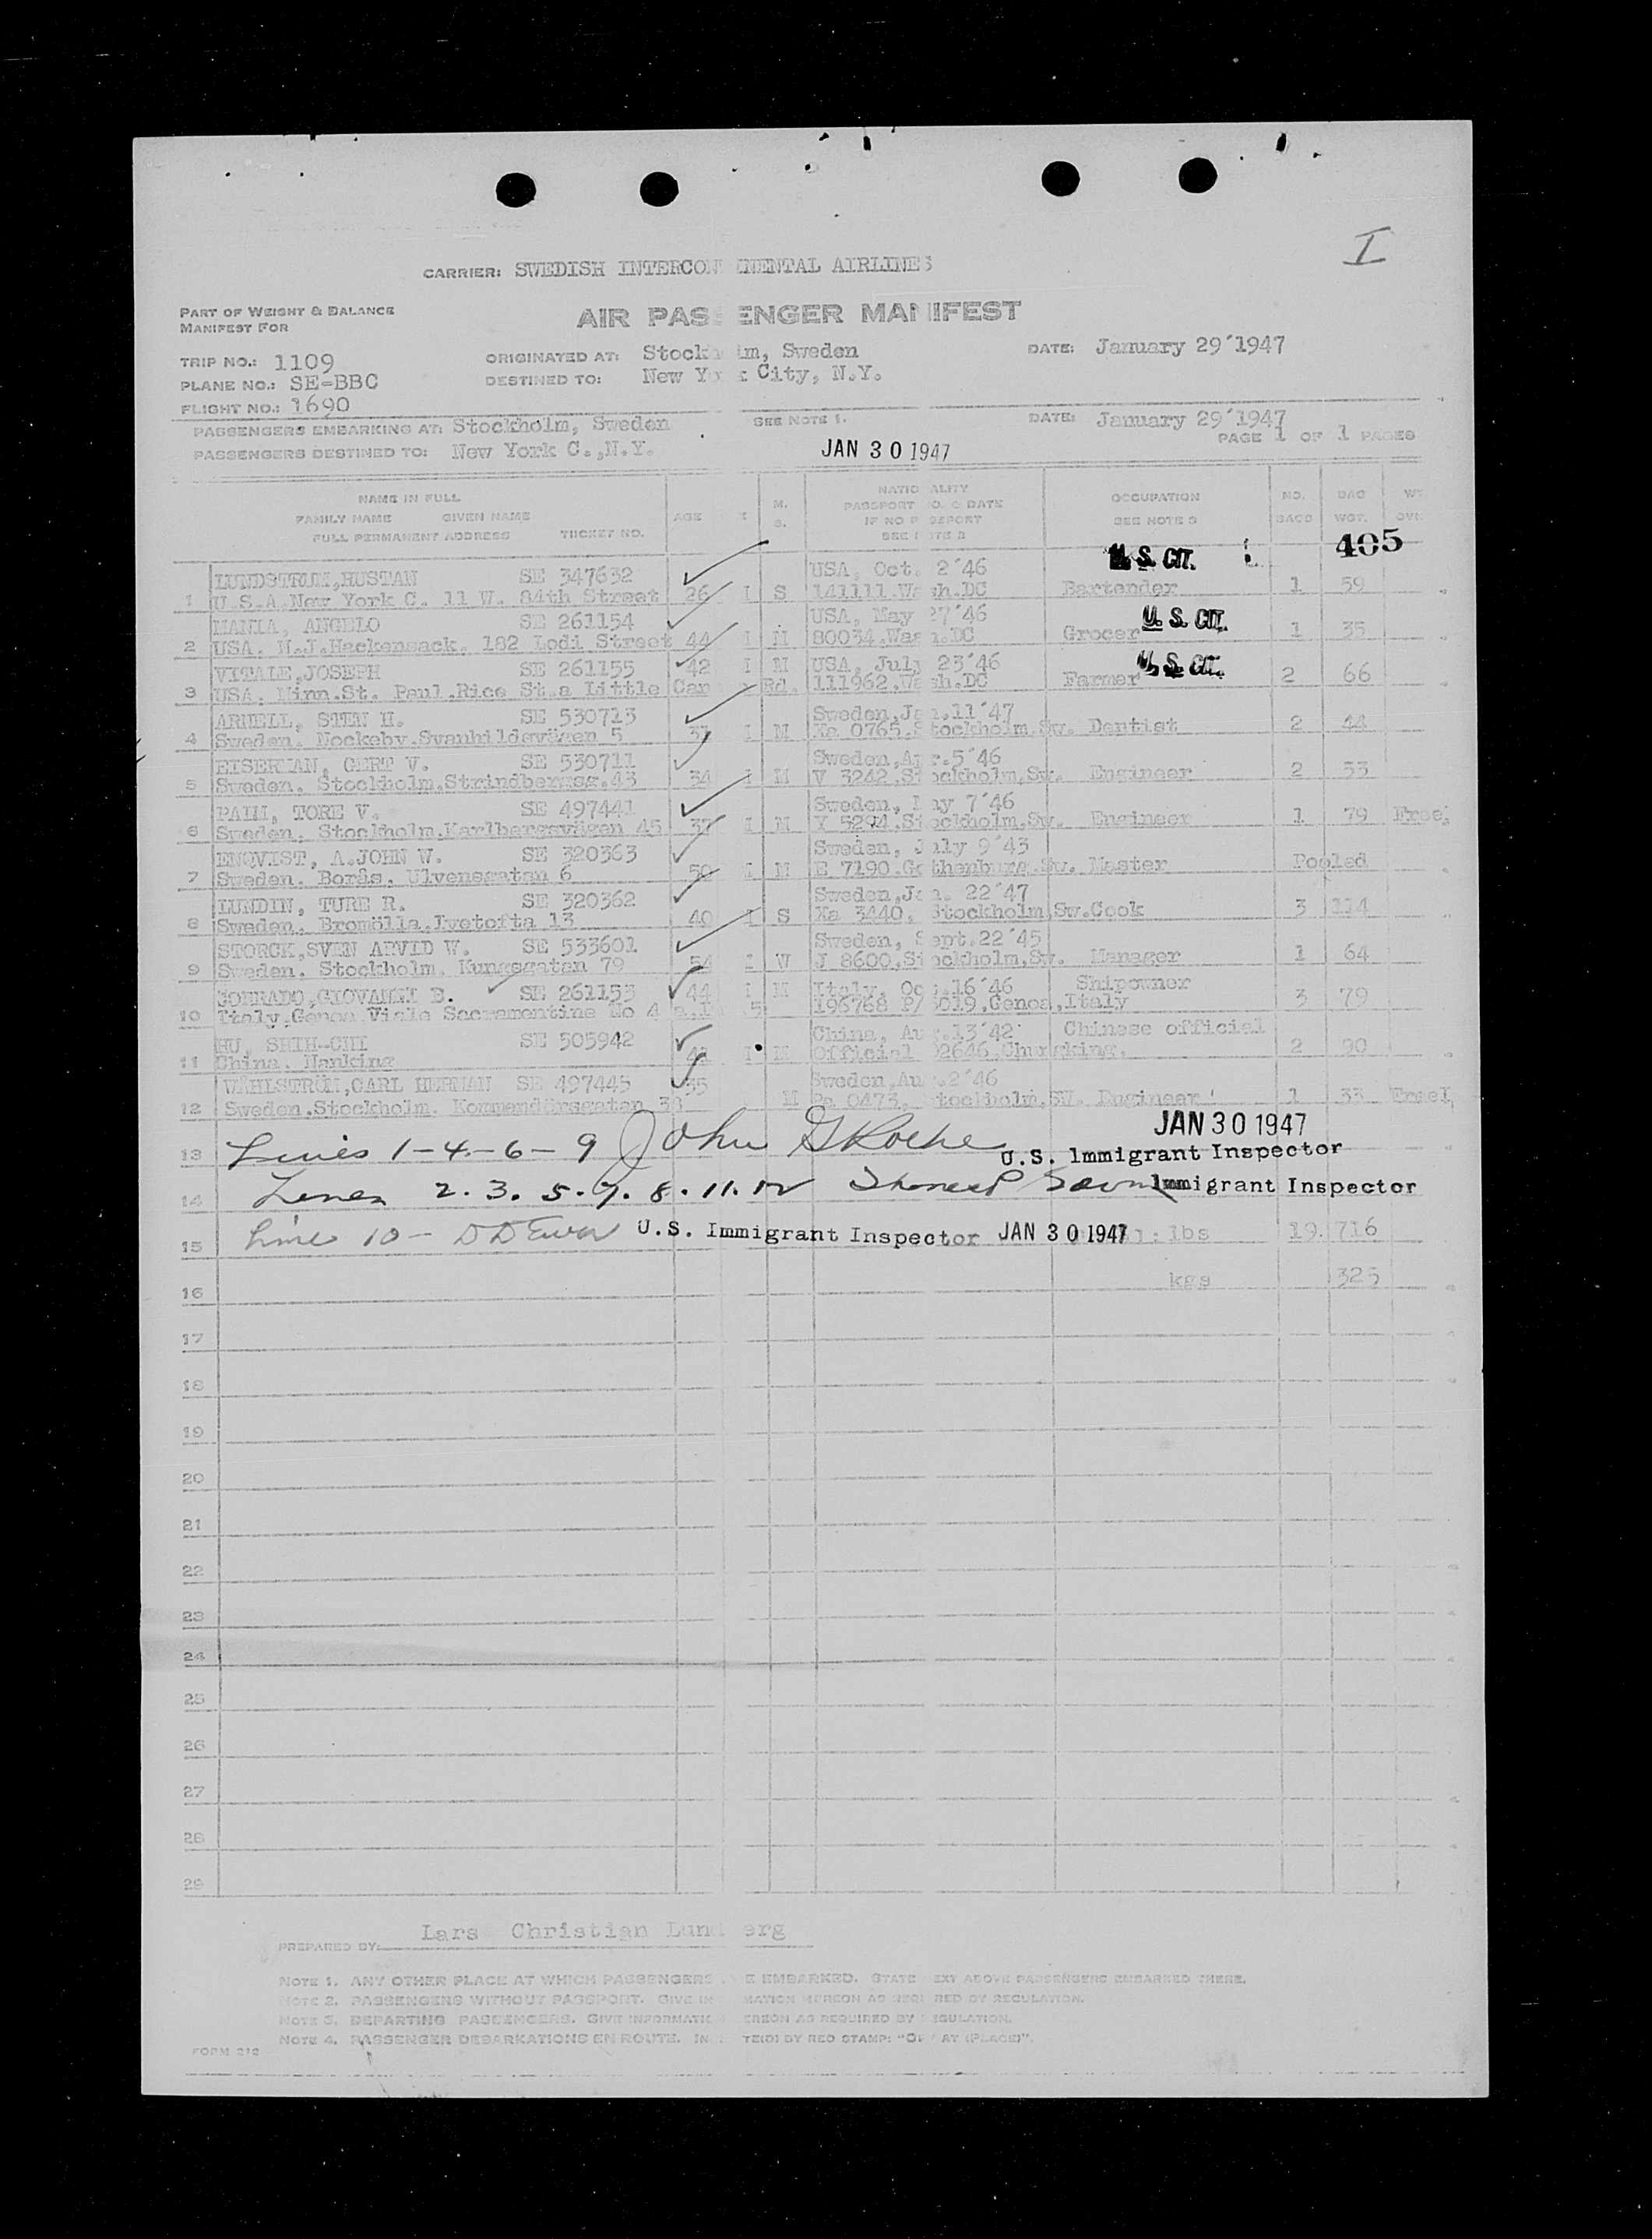 I
CARRIER: SWEDISH INTERCON INENTAL AIRLINES
PART OF WEIGHT & BALANCE
MANIFEST FOR
AIR PAS ENGER MANIFEST
TRIP NO.: 1109
ORIGINATED AT: Stockh lm, Sweden
DATE: January 29'1947
PLANE NO.: SE-BBC
DESTINED TO: New York City, N.Y.
FLIGHT NO.: 1690
PASSENGERS EMBARKING AT: Stockholm, Sweden
SEE NOTE 1.
DATE: January 29'1947
PAGE 1 OF 1 PAGES
PASSENGERS DESTINED TO: New York C.,N.Y.
JAN 30 1947
NAME IN FULL
FAMILY NAME GIVEN NAME
FULL PERMANENT ADDRESS TICKET NO.
AGE
M. S.
NATIO ALITY
PASSPORT O. & DATE
IF NO P SSPORT
SEE NOTE 2
OCCUPATION
SEE NOTE 3
NO. BAGS
BAG WGT.
WT. OVR.
405
LUNDSTROM,HUSTAN SE 347632 USA, Oct. 2'46 U.S. CIT.
1 U.S.A.New York C. 11 W. 84th Street 26 I S 141111.Wash.DC Bartender 1 59
MANIA, ANGELO SE 261154 USA, May 27'46 U.S. CIT.
2 USA. N.J.Hackensack. 182 Lodi Street 44 I M 80034.Wash.DC Grocer 1 35
VITALE,JOSEPH SE 261155 42 I M USA, July 23'46 U.S. CIT.
3 USA. Minn.St. Paul.Rice St.a Little Can Rd. 111962.Wash.DC Farmer 2 66
ARNELL, STEN H. SE 530713 Sweden,Jan.11'47
4 Sweden. Nockeby.Svanhildsvägen 5 37 I M Xa 0765.Stockholm.Sw. Dentist 2 44
EISERMAN, GERT V. SE 530711 Sweden,Apr.5'46
5 Sweden. Stockholm.Strindbergsg.43 34 I M V 3242.Stockholm,Sw. Engineer 2 53
PALM, TORE V. SE 497441 Sweden, May 7'46
6 Sweden. Stockholm.Karlbergsvägen 45 37 I M Y 5294.Stockholm,Sw. Engineer 1 79 Free
ENQVIST, A.JOHN W. SE 320363 Sweden, July 9'43
7 Sweden. Borås. Ulvensgatan 6 50 I M E 7190.Gothenburg.Sw. Master Pooled
LUNDIN, TURE R. SE 320362 Sweden,Jan. 22'47
8 Sweden. Bromölla.Ivetofta 13 40 I S Xa 3440, Stockholm Sw.Cook 3 114
STORCK,SVEN ARVID W. SE 533601 Sweden, Sept.22'45
9 Sweden. Stockholm. Kungsgatan 79 54 I W J 8600,Stockholm,Sw. Manager 1 64
CORRADO,GIOVANNI B. SE 261153 44 I M Italy, Oct.16'46 Shipowner
10 Italy.Genoa Viale Sacramentine No 4 196768 P/ 5019,Genoa,Italy 3 79
HU, SHIH-CHI SE 505942 China, Aug.13'42 Chinese official
11 China. Nanking 41 I M Official 02646,Chungking. 2 90
WÅHLSTRÖM,CARL HERMAN SE 497445 35 Sweden,Aug.2'46
12 Sweden.Stockholm. Kommendörsgatan 38 M Pa 0473. Stockholm.SW. Engineer 1 33 Free
JAN 30 1947
13 Lines 1-4-6-9 John G Roche U.S. Immigrant Inspector
14 Lines 2.3.5.7.8.11.12 Immigrant Inspector
15 Line 10 - U.S. Immigrant Inspector JAN 30 1947 : lbs 19. 716
16 kgs 325
17
18
19
20
21
22
23
24
25
26
27
28
29
PREPARED BY: Lars Christian Lund erg
NOTE 1. ANY OTHER PLACE AT WHICH PASSENGERS ARE EMBARKED. STATE EXT ABOVE PASSENGERS EMBARKED THERE.
NOTE 2. PASSENGERS WITHOUT PASSPORT. GIVE IN MATION HEREON AS REQUIRED BY REGULATION.
NOTE 3. DEPARTING PASSENGERS. GIVE INFORMATION EREON AS REQUIRED BY REGULATION.
NOTE 4. PASSENGER DEBARKATIONS EN ROUTE. IN TE(D) BY RED STAMP: "OFF AT (PLACE)".
FORM 212